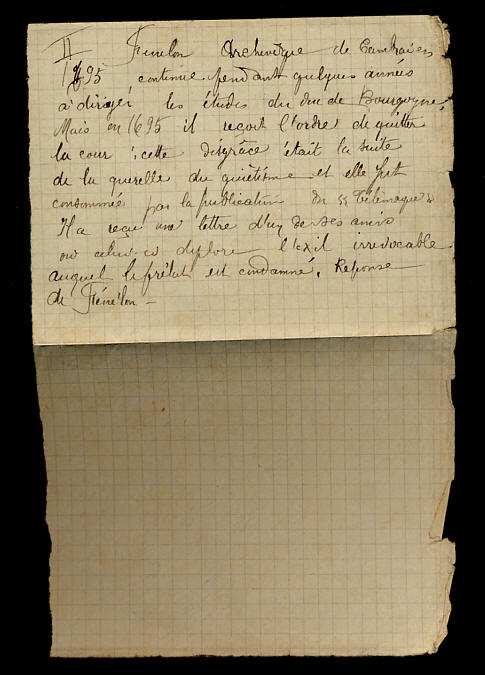 II Fénelon Archevêque de Cambrai en
1695 continue pendant quelques années
à diriger les études du duc de Bourgogne.
Mais en 1695 il reçoit l'ordre de quitter
la cour ; cette disgrâce était la suite
de la querelle du quiétisme et elle fut
consommée par la publication du "Télémaque"
Il a reçu une lettre d'un de ses amis
où celui-ci déplore l'exil irrevocable
auquel le prélat est condamné. Réponse
de Fénélon –